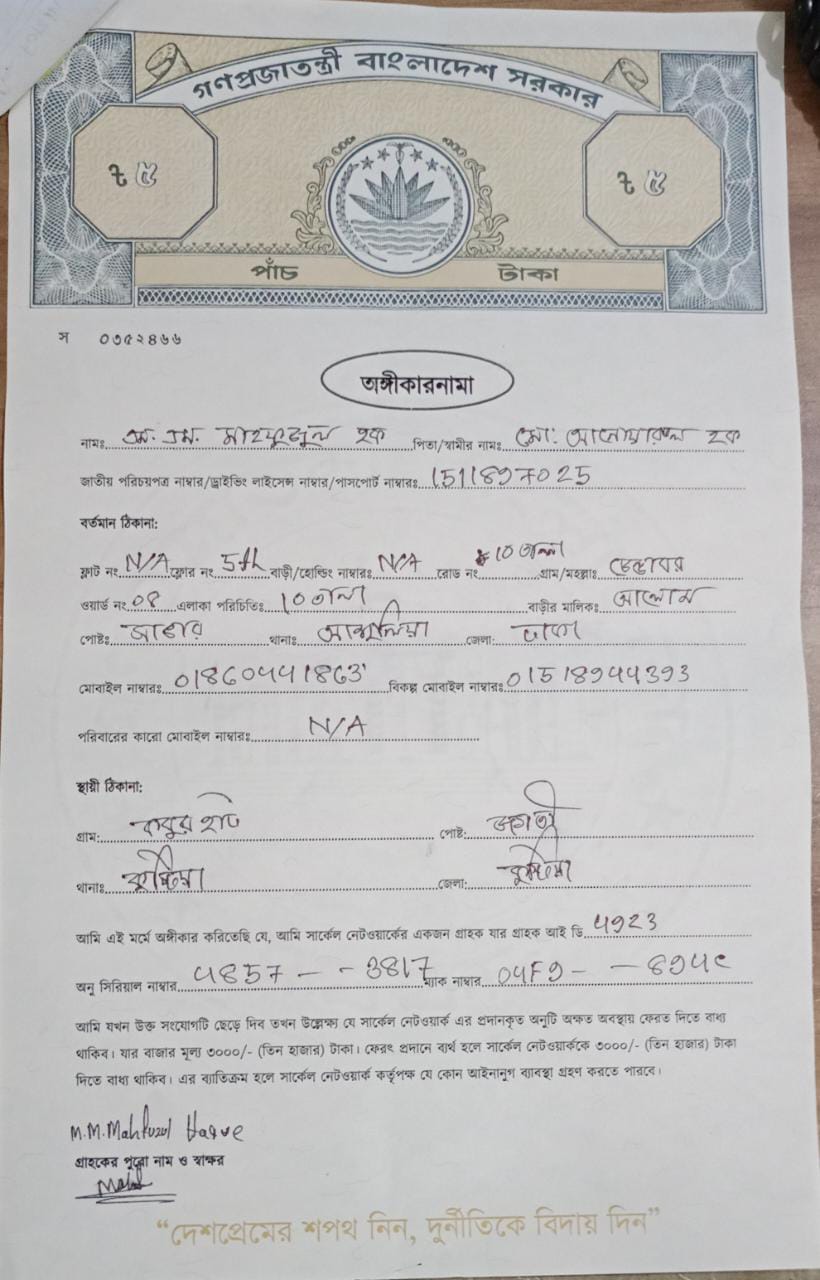 গণপ্রজাতন্ত্রী বাংলাদেশ সরকার
৳ ৫ ৳ ৫
পাঁচ টাকা
স ০৩৫২৪৬৬
অঙ্গীকারনামা
নামঃ এম. এম. মাহফুজুল হক পিতা/স্বামীর নামঃ মো: আনোয়ারুল হক
জাতীয় পরিচয়পত্র নাম্বার/ড্রাইভিং লাইসেন্স নাম্বার/পাসপোর্ট নাম্বারঃ 1511897025
বর্তমান ঠিকানা:
ফ্লাট নং N/A ফ্লোর নং 5th বাড়ী/হোল্ডিং নাম্বারঃ N/A রোড নং 10 তলা গ্রাম/মহল্লাঃ
ওয়ার্ড নং 08 এলাকা পরিচিতিঃ 10 তলা বাড়ীর মালিকঃ আলোম
পোষ্টঃ সাভার থানাঃ আশুলিয়া জেলা: ঢাকা
মোবাইল নাম্বারঃ 01860441863 বিকল্প মোবাইল নাম্বারঃ 01518944393
পরিবারের কারো মোবাইল নাম্বারঃ N/A
স্থায়ী ঠিকানা:
গ্রাম: কবুর হাট পোষ্ট: জগতী
থানাঃ কুষ্টিয়া জেলা: কুষ্টিয়া
আমি এই মর্মে অঙ্গীকার করিতেছি যে, আমি সার্কেল নেটওয়ার্কের একজন গ্রাহক যার গ্রাহক আই ডি 4923
অনু সিরিয়াল নাম্বার 4857 - - 3817 ম্যাক নাম্বার 04F9 - - 894c
আমি যখন উক্ত সংযোগটি ছেড়ে দিব তখন উল্লেক্ষ্য যে সার্কেল নেটওয়ার্ক এর প্রদানকৃত অনুটি অক্ষত অবস্থায় ফেরত দিতে বাধ্য
থাকিব। যার বাজার মূল্য ৩০০০/- (তিন হাজার) টাকা। ফেরৎ প্রদানে ব্যর্থ হলে সার্কেল নেটওয়ার্ককে ৩০০০/- (তিন হাজার) টাকা
দিতে বাধ্য থাকিব। এর ব্যাতিক্রম হলে সার্কেল নেটওয়ার্ক কর্তৃপক্ষ যে কোন আইনানুগ ব্যাবস্থা গ্রহণ করতে পারবে।
M.M.Mahfuzul Haque
গ্রাহকের পুরো নাম ও স্বাক্ষর
“দেশপ্রেমের শপথ নিন, দুর্নীতিকে বিদায় দিন”